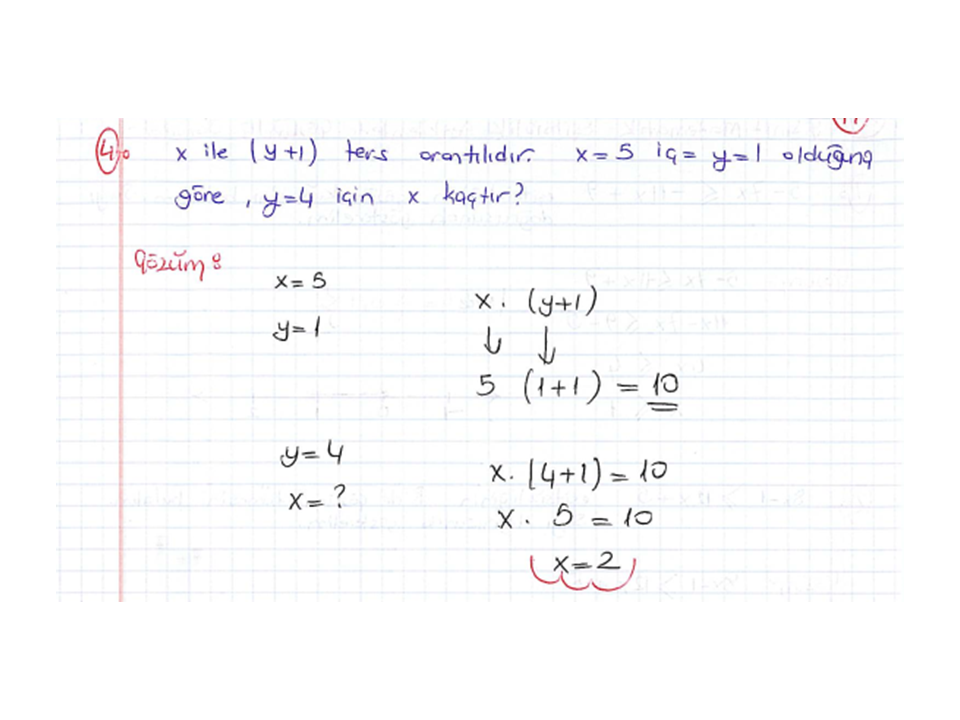 4) x ile (y+1) ters orantılıdır. x=5 iç= y=1 olduğuna
göre, y=4 için x kaçtır?
Çözüm:
x=5
y=1
x. (y+1)
↓ ↓
5 (1+1) = 10
y=4
x=?
x. (4+1)=10
x. 5 =10
x=2